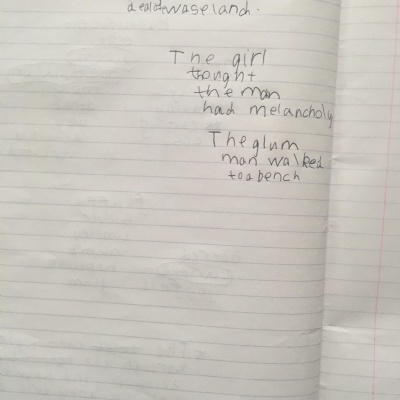 waseland.
The girl
tought
the man
had melancholy
The glum
man walked
to a bench